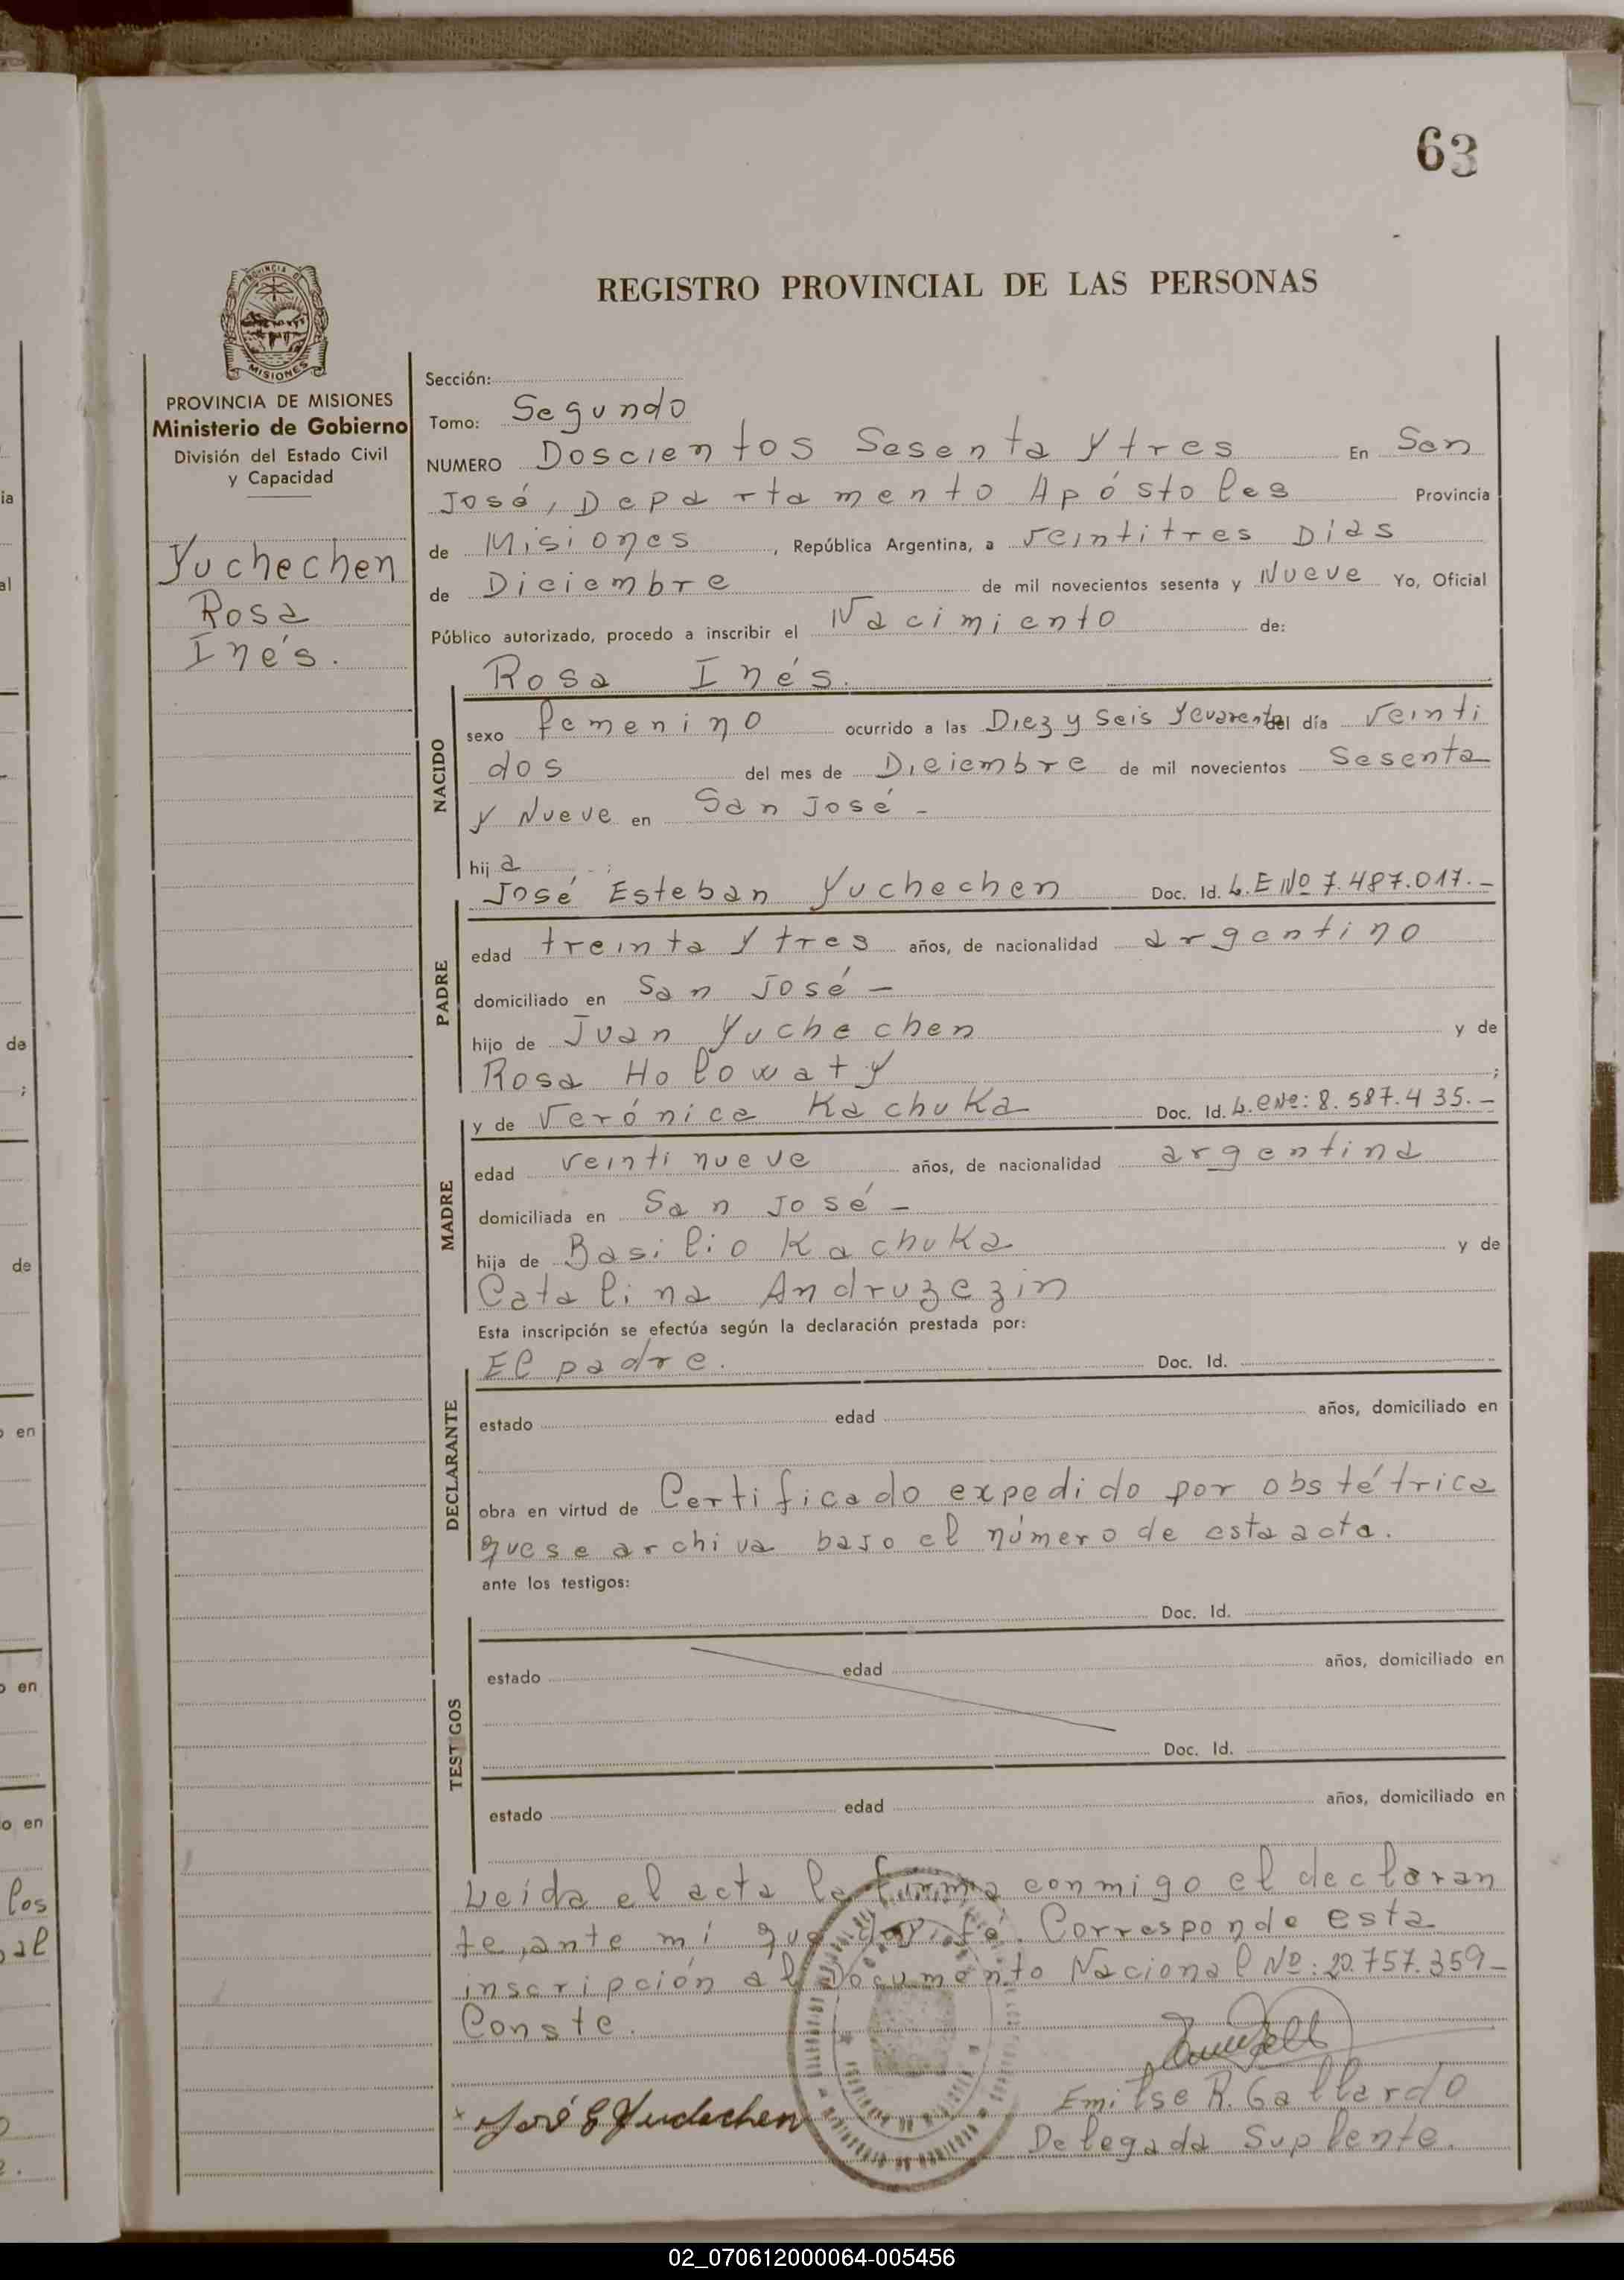 63
REGISTRO PROVINCIAL DE LAS PERSONAS
PROVINCIA DE MISIONES
MISIONES
PROVINCIA DE MISIONES
Ministerio de Gobierno
División del Estado Civil
y Capacidad
Yuchechen
Rosa
Inés.
Sección:
Tomo: Segundo
NUMERO Doscientos Sesenta y tres En San
José, Departamento Apóstoles Provincia
de Misiones, República Argentina, a veintitres Días
de Diciembre de mil novecientos sesenta y Nueve Yo, Oficial
Público autorizado, procedo a inscribir el Nacimiento de:
Rosa Inés.
NACIDO
sexo femenino ocurrido a las Diez y seis y cuarenta del día veinti
dos del mes de Diciembre de mil novecientos Sesenta
y Nueve en San José -
hija
PADRE
José Esteban Yuchechen Doc. Id. L.E Nº 7.487.017.-
edad treinta y tres años, de nacionalidad argentino
domiciliado en San José -
hijo de Juan Yuchechen y de
Rosa Holowaty ;
MADRE
y de Verónica Kachuka Doc. Id. L.e Nº: 8.587.435.-
edad veinti nueve años, de nacionalidad argentina
domiciliada en San José -
hija de Basilio Kachuka y de
Catalina Andruzezin
Esta inscripción se efectúa según la declaración prestada por:
DECLARANTE
El padre. Doc. Id.
estado edad años, domiciliado en
obra en virtud de Certificado expedido por obstétrica
que se archiva bajo el número de esta acta.
ante los testigos:
TESTIGOS
Doc. Id.
estado edad años, domiciliado en
Doc. Id.
estado edad años, domiciliado en
Leída el acta la firma conmigo el declaran
te, ante mí que doy fé. Corresponde esta
inscripción al Documento Nacional Nº: 20.757.359-
Conste.
José E Yuchechen
Emilse R. Gallardo
Delegada Suplente.
ia
al
da
;
de
en
o en
o en
los
al
02_070612000064-005456